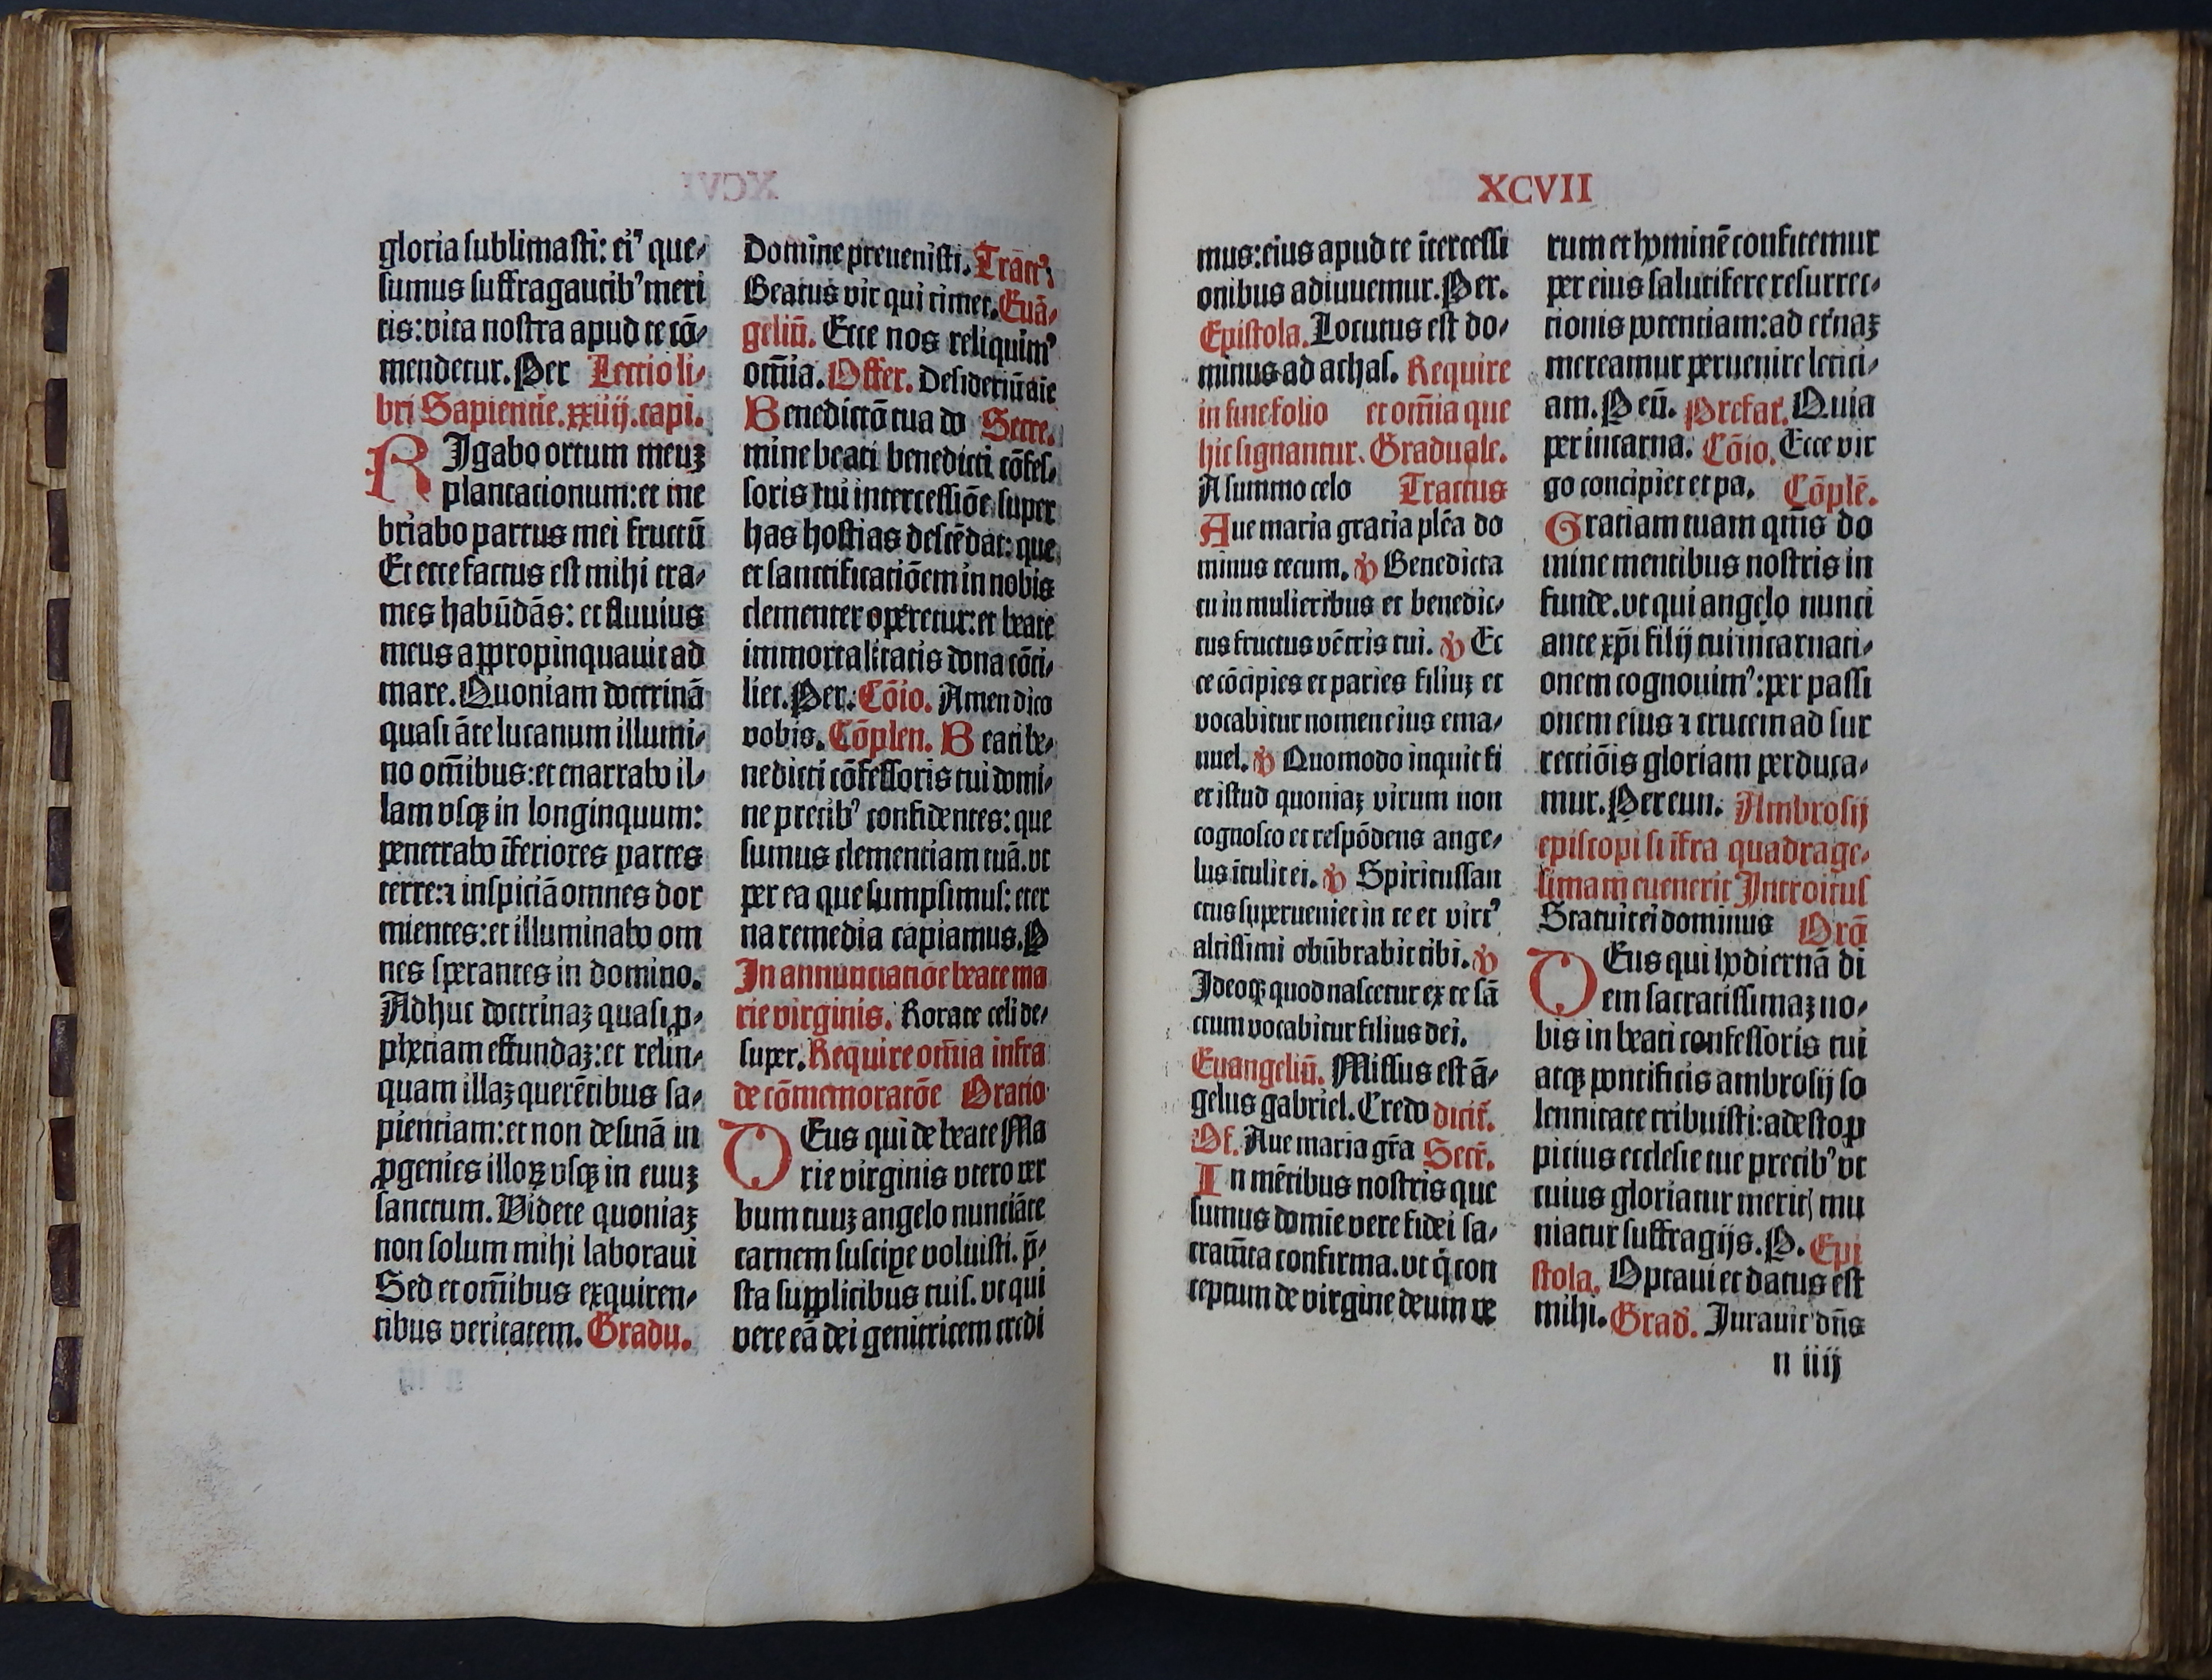 gloria sublimasti: ei⁹ que⸗
sumus suffragantib⁹ meri
tis: vita nostra apud te cō⸗
mendetur. Per Lectio li⸗
bri Sapientie. xxiiij. capi.
RIgabo ortum meuȝ
plantationum: et ine
briabo partus mei fructū
Et ecce factus est mihi tra⸗
mes habūdās: et fluuius
meus appropinquauit ad
mare. Quoniam doctrinā
quasi āte lucanum illumi⸗
no om̄ibus: et enarrabo il⸗
lam vsqȝ in longinquum:
penetrabo īferiores partes
terre: ⁊ inspiciā omnes dor
mientes: et illuminabo om
nes sperantes in domino.
Adhuc doctrinaȝ quasi ꝓ⸗
phetiam effundaȝ: et relin⸗
quam illaȝ querētibus sa⸗
pientiam: et non desinā in
ꝓgenies illoꝝ vsqȝ in euuȝ
sanctum. Videte quoniaȝ
non solum mihi laboraui
Sed et om̄ibus exquiren⸗
tibus veritatem. Gradu.
Domine preuenisti. Tract⁹
Beatus vir qui timet. Euā⸗
geliū. Ecce nos reliquim⁹
om̄ia. Offer. Desideriū aīe
Benedictō tua do Secre.
mine beati benedicti cōfes⸗
soris tui intercessiōe super
has hostias descēdat: que
et sanctificatiōem in nobis
clementer operetur: et beate
immortalitatis dona cōci⸗
liet. Per. Cōio. Amen dico
vobis. Cōplen. Beati be⸗
nedicti cōfessoris tui domi⸗
ne precib⁹ confidentes: que
sumus clementiam tuā. vt
per ea que sumpsimus: eter
na remedia capiamus. P
In annunciatiōe beate ma
rie virginis. Rorate celi de⸗
super. Require om̄ia infra
de cōmemoratōe Oratio
DEus qui de beate Ma
rie virginis vtero ver
bum tuuȝ angelo nunciāte
carnem suscipe voluisti. p̄⸗
sta supplicibus tuis. vt qui
vere eā dei genitricem credi
XCVII
mus: eius apud te ītercessi
onibus adiuuemur. Per.
Epistola. Locutus est do⸗
minus ad achas. Require
in fine folio et om̄ia que
hic signantur. Graduale.
A summo celo Tractus
Aue maria gratia plēa do
minus tecum. ℣ Benedicta
tu in mulieribus et benedic⸗
tus fructus vētris tui. ℣ Ec
ce cōcipies et paries filiuȝ et
vocabitur nomen eius ema⸗
nuel. ℣ Quomodo inquit fi
et istud quoniaȝ virum non
cognosco et respōdens ange⸗
lus ītulit ei. ℣ Spiritussan
ctus superueniet in te et virt⁹
altissimi obūbrabit tibi. ℣
Ideoqȝ quod nascetur ex te sā
ctum vocabitur filius dei.
Euangeliū. Missus est ā⸗
gelus gabriel. Credo dicit̄.
Of. Aue maria gr̄a Secr̄.
In mētibus nostris que
sumus domīe vere fidei sa⸗
cram̄ta confirma. vt q̇ con
ceptum de virgine deum ve
rum et hominē confitemur
per eius salutifere resurrec⸗
tionis potentiam: ad et̄naȝ
mereamur peruenire letici⸗
am. P eū. Prefat̄. Quia
per incarna. Cōio. Ecce vir
go concipiet et pa. Cōplē.
Gratiam tuam qm̄s do
mine mentibus nostris in
funde. vt qui angelo nunci
ante xp̄i filij tui incarnati⸗
onem cognouim⁹: per passi
onem eius ⁊ crucem ad sur
rectiōis gloriam perduca⸗
mur. Per eun. Ambrosij
episcopi si īfra quadrage⸗
simam euenerit Introitus
Statuit ei dominus Orō
DEus qui hodiernā di
em sacratissimaȝ no⸗
bis in beati confessoris tui
atqȝ pontificis ambrosij so
lennitate tribuisti: adesto ꝓ
picius ecclesie tue precib⁹ vt
cuius gloriatur merit) mu
niatur suffragijs. P. Epi
stola. Optaui et datus est
mihi. Grad̄. Jurauit dn̄s
n iiij